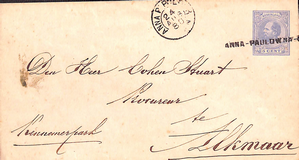 ANNA PAULOWNA
ANNA-PAULOWNA-
Den Heer Cohen Stuart
te
Kennemerpark
Alkmaar